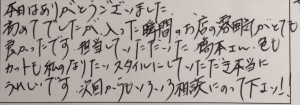 本日はありがとうございました。
初めてでしたが、入った瞬間のお店の雰囲気がとても
良かったです。担当していただいた橋本さん、色も
カットも私のなりたいスタイルにしていただき本当に
うれしいです。次回からもいろいろ相談にのって下さい!!